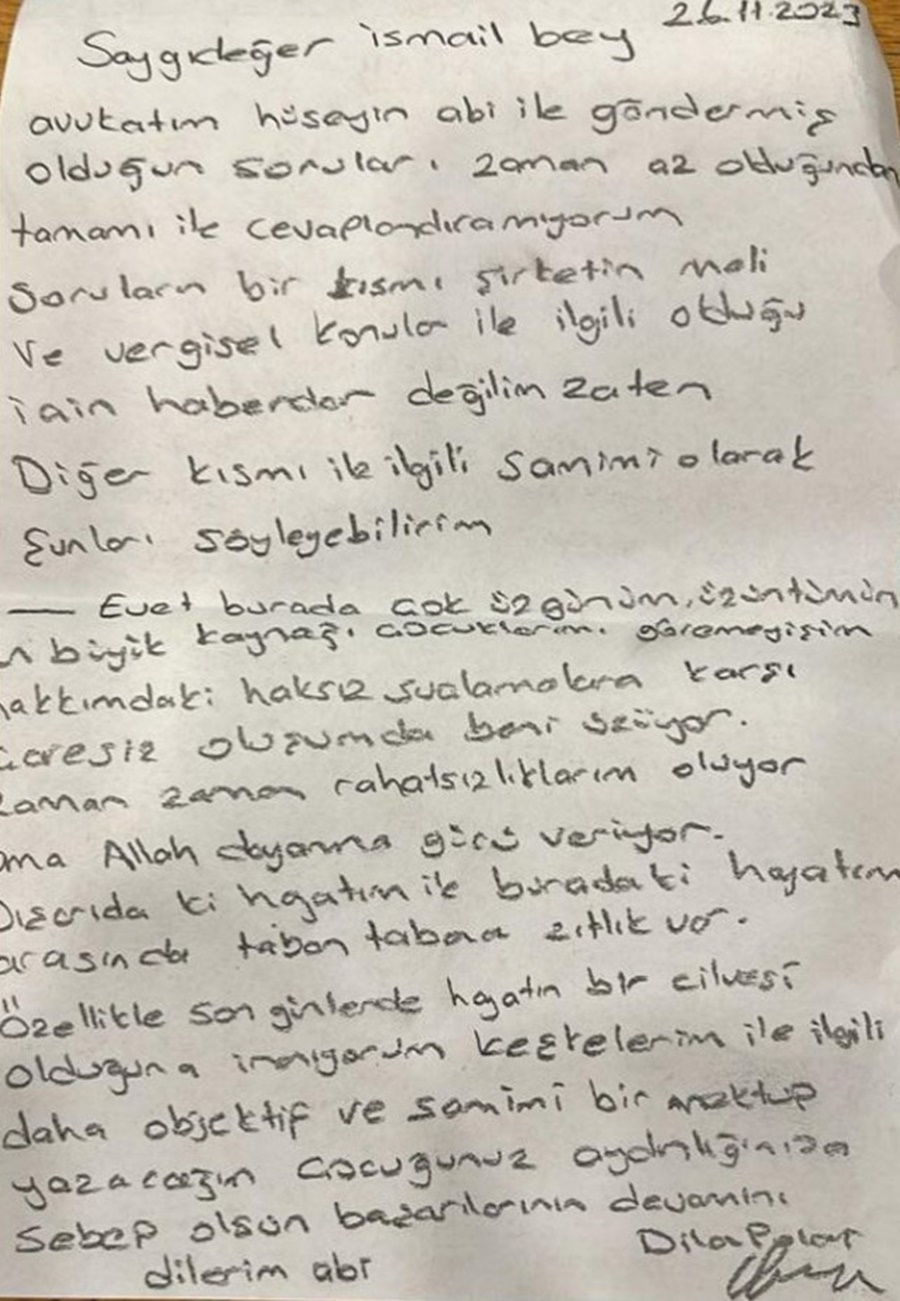 26.11.2023
Saygıdeğer ismail bey
avukatım hüseyin abi ile göndermiş
olduğun soruları zaman az olduğundan
tamamı ile cevaplandıramıyorum
Soruların bir kısmı şirketin mali
Ve vergisel konular ile ilgili olduğu
için haberdar değilim zaten
Diğer kısmı ile ilgili samimi olarak
Şunları söyleyebilirim
— Evet burada çok üzgünüm, üzüntümün
n büyük kaynağı çocuklarımı göremeyişim
hakkımdaki haksız suçlamalara karşı
çaresiz oluşumda beni üzüyor.
zaman zaman rahatsızlıklarım oluyor
ama Allah dayanma gücü veriyor.
Dışarıda ki hayatım ile buradaki hayatım
arasında taban tabana zıtlık var.
Özellikle son günlerde hayatın bir cilvesi
olduğuna inanıyorum keşkelerim ile ilgili
daha objektif ve samimi bir mektup
yazacağım çocuğunuz aydınlığınıza
Sebep olsun başarılarının devamını
dilerim abi
Dila Polat